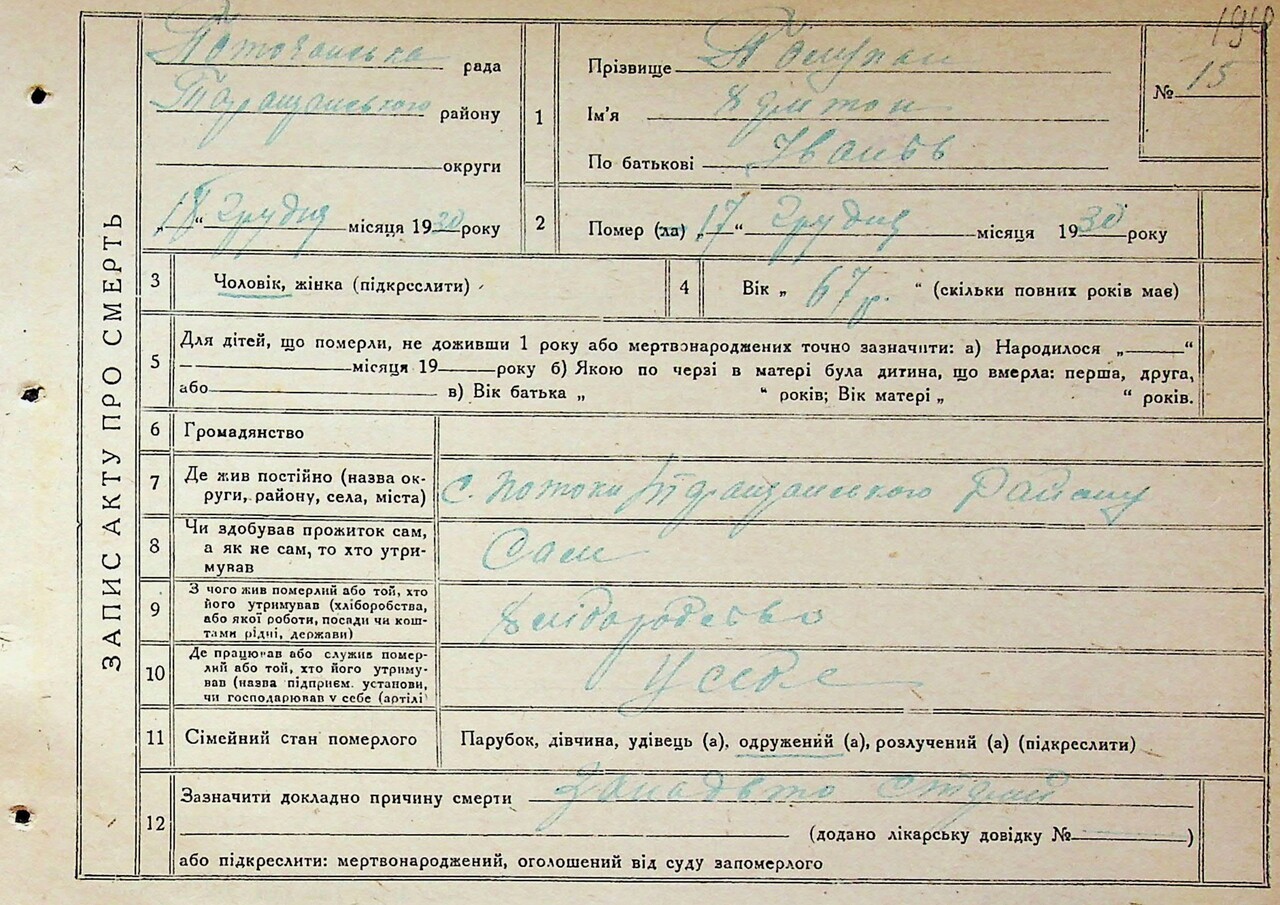 190
Поточанська рада
Таращанського району
округи
„18“ Грудня місяця 1930 року
ЗАПИС АКТУ ПРО СМЕРТЬ
1
Прізвище
Ім'я
По батькові Іванов
№ 15
2 Помер (ла) „17“ Грудня місяця 1930 року
3 Чоловік, жінка (підкреслити)
4 Вік „67 р.“ (скільки повних років має)
5 Для дітей, що померли, не доживши 1 року або мертвонароджених точно зазначити: а) Народилося „ “
місяця 19 року б) Якою по черзі в матері була дитина, що вмерла: перша, друга,
або в) Вік батька „ “ років; Вік матері „ “ років.
6 Громадянство
7 Де жив постійно (назва ок-
руги, району, села, міста) с. Потоки Таращанського Району
8 Чи здобував прожиток сам,
а як не сам, то хто утри-
мував Сам
9 З чого жив померлий або той, хто
його утримував (хліборобства,
або якої роботи, посади чи кош-
тами рідні, держави) хліборобство
10 Де працював або служив помер-
лий або той, хто його утриму-
вав (назва підприєм. установи,
чи господарював у себе (артілі) У себе
11 Сімейний стан померлого Парубок, дівчина, удівець (а), одружений (а), розлучений (а) (підкреслити)
12 Зазначити докладно причину смерти старий
(додано лікарську довідку № )
або підкреслити: мертвонароджений, оголошений від суду запомерлого